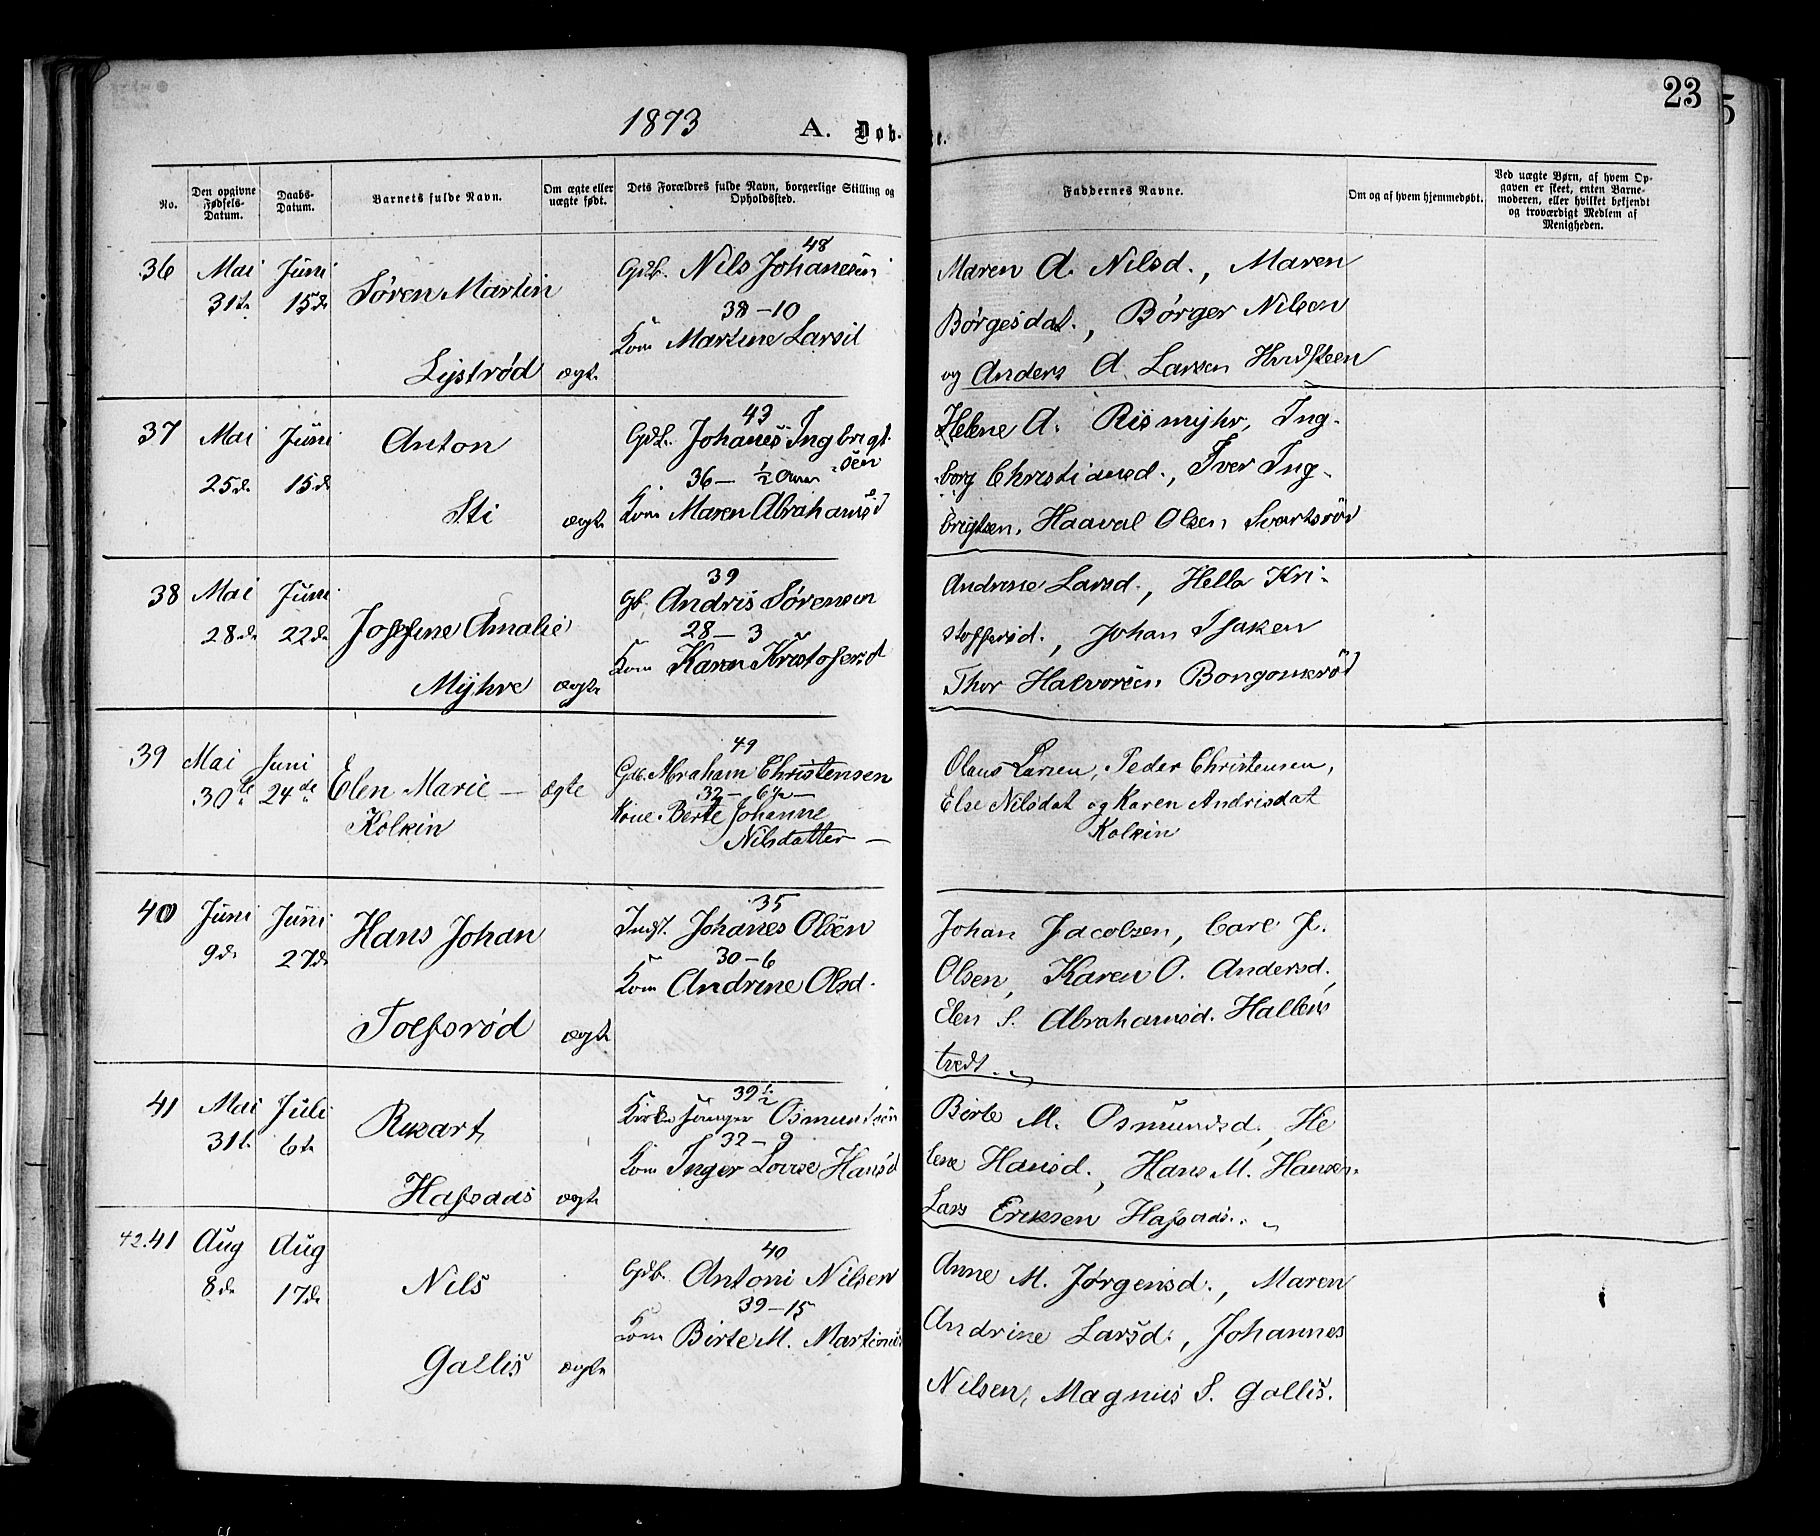 23
1873 A. Døb-te.
No.
Den opgivne Fødsels-Datum.
Daabs-Datum.
Barnets fulde Navn.
Om ægte eller uægte født.
Dets Forældres fulde Navn, borgerlige Stilling og Opholdssted.
Faddernes Navne.
Om og af hvem hjemmedøbt.
Ved uægte Børn, af hvem Op-
gaven er skeet, enten Barne-
moderen, eller hvilket bekjendt
og troværdigt Medlem af
Menigheden.
36 Mai 31te Juni 15de
Søren Martin
Lystrød ægte
48
Gdb. Nils Johanesen
38-10
Kone Martine Larsd
Maren A. Nilsd., Maren
Børgesdat., Børger Nilsen
og Anders A. Larsen Hvidsteen
37 Mai 25de Juni 15de
Anton
Sti ægte
43
Gdb. Johanes Ingbrigt-
sen
36 - 1/2
Kone Maren Abrahamsd
Helene A. Rismyhr, Ing-
borg Christiansd., Iver Ing-
brigtsen, Haaval Olsen Svartsrød
38 Mai 28de Juni 22de
Josefine Amalie
Myhre ægte
39
Gb. Andris Sørensen
28-3
Kone Karen Kristofersd
Andrine Larsd., Hella Kri-
stoffersd., Johan Isaksen
Thor Halvorsen Bongomsrød
39 Mai 30te Juni 24de
Elen Marie - ægte
Kolkin
49
Gdb. Abraham Christensen
32 -
Kone. Berte Johanne
Nilsdatter -
Olaus Larsen, Peder Christensen,
Else Nilsdat og Karen Andrisdat
Kolkin
40 Juni 9de Juni 27de
Hans Johan
Tolfsrød ægte
35
Indst. Johanes Olsen
30-6
Kone Andrine Olsd.
Johan Jacobsen, Carl J.
Olsen, Karen O. Andersd,
Elen S. Abrahamsd. Hallens
tvedt.
41 Mai 31te Juli 6te
Rikart
Hafsaas ægte
39 1/2
Kirkesanger Osmundsen
32-9
Kone Inger Lovise Hansd
Birte M. Osmundsd., He
lene Hansd., Hans M. Hansen
Lars Eriksen Hafsaas.
42.41 Aug 8de Aug 17de
Nils
Gallis ægte
40
Gdb. Antoni Nilsen
39-15
Kone Birte M. Martinus
Anne M. Jørgensd., Maren
Andrine Larsd., Johannes
Nilsen, Magnus S. Gallis.